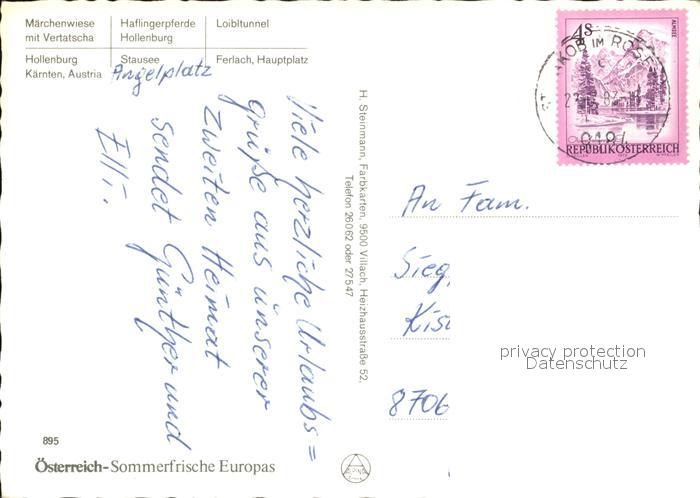 Märchenwiese
mit Vertatscha
Haflingerpferde
Hollenburg
Loibltunnel
Hollenburg
Kärnten, Austria
Stausee
Ferlach, Hauptplatz
Angelplatz
Viele herzliche Urlaubs=
grüße aus unserer
zweiten Heimat
sendet Günther und
Elli.
H. Steinmann, Farbkarten, 9500 Villach, Heizhausstraße 52,
Telefon 26062 oder 27547
4S
ALMSEE
REPUBLIK ÖSTERREICH
JAKOB IM ROSE
An Fam.
Sieg
Kis
8706
privacy protection
Datenschutz
895
Österreich-Sommerfrische Europas